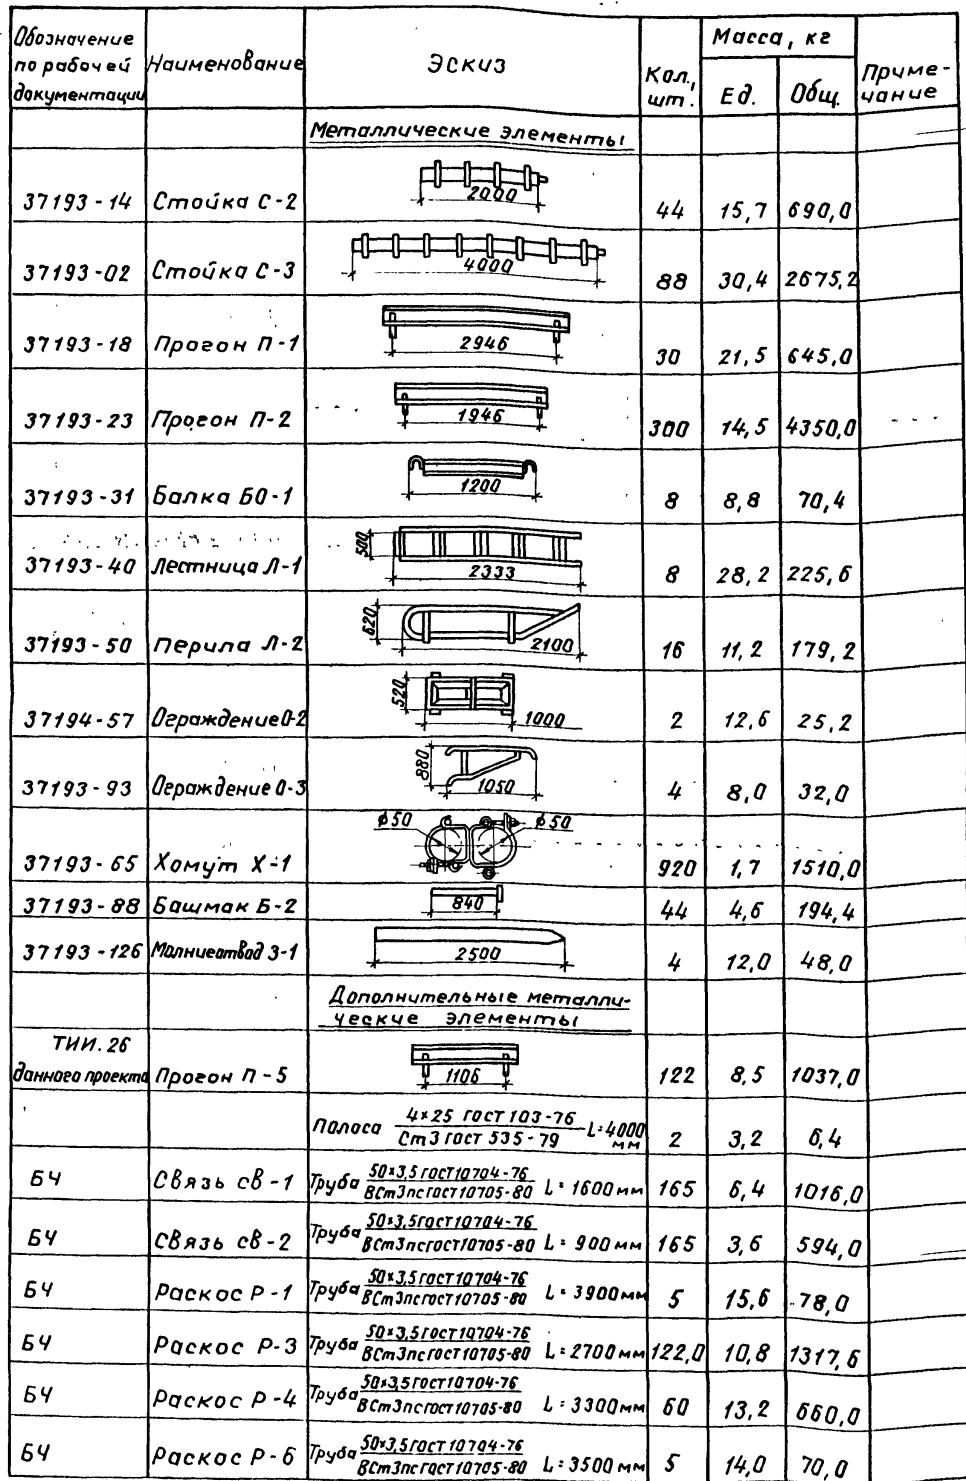 Обозначение по рабочей документации Наименование Эскиз Кол., шт. Масса, кг Ед. Общ. Примечание
Металлические элементы
37193-14 Стойка С-2 2000 44 15,7 690,0
37193-02 Стойка С-3 4000 88 30,4 2675,2
37193-18 Прогон П-1 2946 30 21,5 645,0
37193-23 Прогон П-2 1946 300 14,5 4350,0
37193-31 Балка БО-1 1200 8 8,8 70,4
37193-40 Лестница Л-1 500 2333 8 28,2 225,6
37193-50 Перила Л-2 620 2100 16 11,2 179,2
37194-57 Ограждение О-2 520 1000 2 12,6 25,2
37193-93 Ограждение О-3 880 1050 4 8,0 32,0
37193-65 Хомут Х-1 ϕ50 ϕ50 920 1,7 1510,0
37193-88 Башмак Б-2 840 44 4,6 194,4
37193-126 Молниеотвод З-1 2500 4 12,0 48,0
Дополнительные металли-
ческие элементы
ТИИ.26
данного проекта Прогон П-5 1106 122 8,5 1037,0
Полоса 4×25 ГОСТ 103-76 / Ст3 ГОСТ 535-79 L=4000 мм 2 3,2 6,4
БЧ Связь СВ-1 Труба 50×3,5 ГОСТ 10704-76 / ВСт3пс ГОСТ 10705-80 L=1600 мм 165 6,4 1016,0
БЧ Связь СВ-2 Труба 50×3,5 ГОСТ 10704-76 / ВСт3пс ГОСТ 10705-80 L=900 мм 165 3,6 594,0
БЧ Раскос Р-1 Труба 50×3,5 ГОСТ 10704-76 / ВСт3пс ГОСТ 10705-80 L=3900 мм 5 15,6 78,0
БЧ Раскос Р-3 Труба 50×3,5 ГОСТ 10704-76 / ВСт3пс ГОСТ 10705-80 L=2700 мм 122,0 10,8 1317,6
БЧ Раскос Р-4 Труба 50×3,5 ГОСТ 10704-76 / ВСт3пс ГОСТ 10705-80 L=3300 мм 60 13,2 660,0
БЧ Раскос Р-6 Труба 50×3,5 ГОСТ 10704-76 / ВСт3пс ГОСТ 10705-80 L=3500 мм 5 14,0 70,0